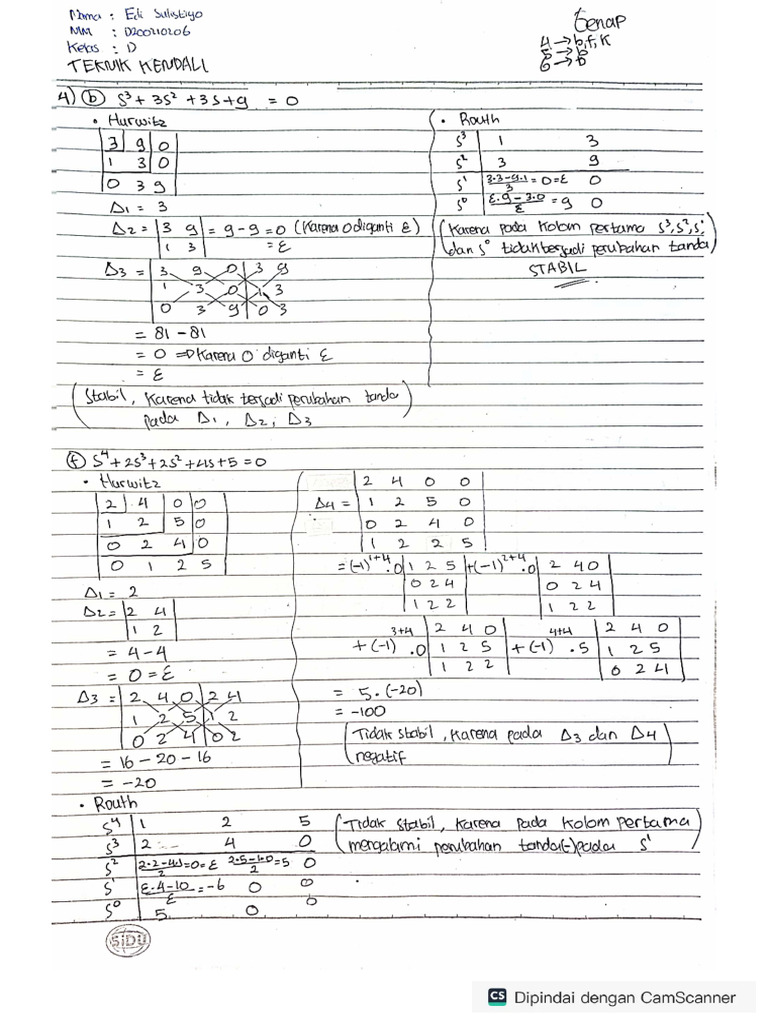 Nama : Edi Sulistiyo
NIM : D200210206
Kelas : D
TEKNIK KENDALI
Genap
4 → b, f, k
5 → b
6 → b
4) (b) s³ + 3s² + 3s + 9 = 0
• Hurwitz
3 9 0
1 3 0
0 3 9
Δ1 = 3
Δ2 = | 3 9 | = 9 - 9 = 0 (Karena 0 diganti ε)
| 1 3 | = ε
Δ3 = | 3 9 0 | 3 9
| 1 3 0 | 1 3
| 0 3 9 | 0 3
= 81 - 81
= 0 ⇒ Karena 0 diganti ε
= ε
(Stabil, Karena tidak terjadi perubahan tanda
pada Δ1, Δ2, Δ3)
• Routh
s³ | 1 3
s² | 3 9
s¹ | (3·3-9·1)/3 = 0 = ε 0
s⁰ | (ε·9-3·0)/ε = 9 0
(Karena pada Kolom pertama s³, s², s¹,
dan s⁰ tidak terjadi perubahan tanda)
STABIL
(f) s⁴ + 2s³ + 2s² + 4s + 5 = 0
• Hurwitz
2 4 0 0
1 2 5 0
0 2 4 0
0 1 2 5
Δ1 = 2
Δ2 = | 2 4 |
| 1 2 |
= 4 - 4
= 0 = ε
Δ3 = | 2 4 0 | 2 4
| 1 2 5 | 1 2
| 0 2 4 | 0 2
= 16 - 20 - 16
= -20
| 2 4 0 0
Δ4 = | 1 2 5 0
| 0 2 4 0
| 1 2 2 5
= (-1)¹⁺⁴ · 0 | 1 2 5 | + (-1)²⁺⁴ · 0 | 2 4 0 |
| 0 2 4 | | 0 2 4 |
| 1 2 2 | | 1 2 2 |
+ (-1)³⁺⁴ · 0 | 2 4 0 | + (-1)⁴⁺⁴ · 5 | 2 4 0 |
| 1 2 5 | | 1 2 5 |
| 1 2 2 | | 0 2 4 |
= 5 · (-20)
= -100
(Tidak stabil, Karena pada Δ3 dan Δ4
negatif)
• Routh
s⁴ | 1 2 5
s³ | 2 4 0
s² | (2·2-4·1)/2 = 0 = ε (2·5-1·0)/2 = 5 0
s¹ | (ε·4-10)/ε = -6 0 0
s⁰ | 5 0 0
(Tidak stabil, Karena pada Kolom pertama
mengalami perubahan tanda(-) pada s¹)
SiDU
CS Dipindai dengan CamScanner